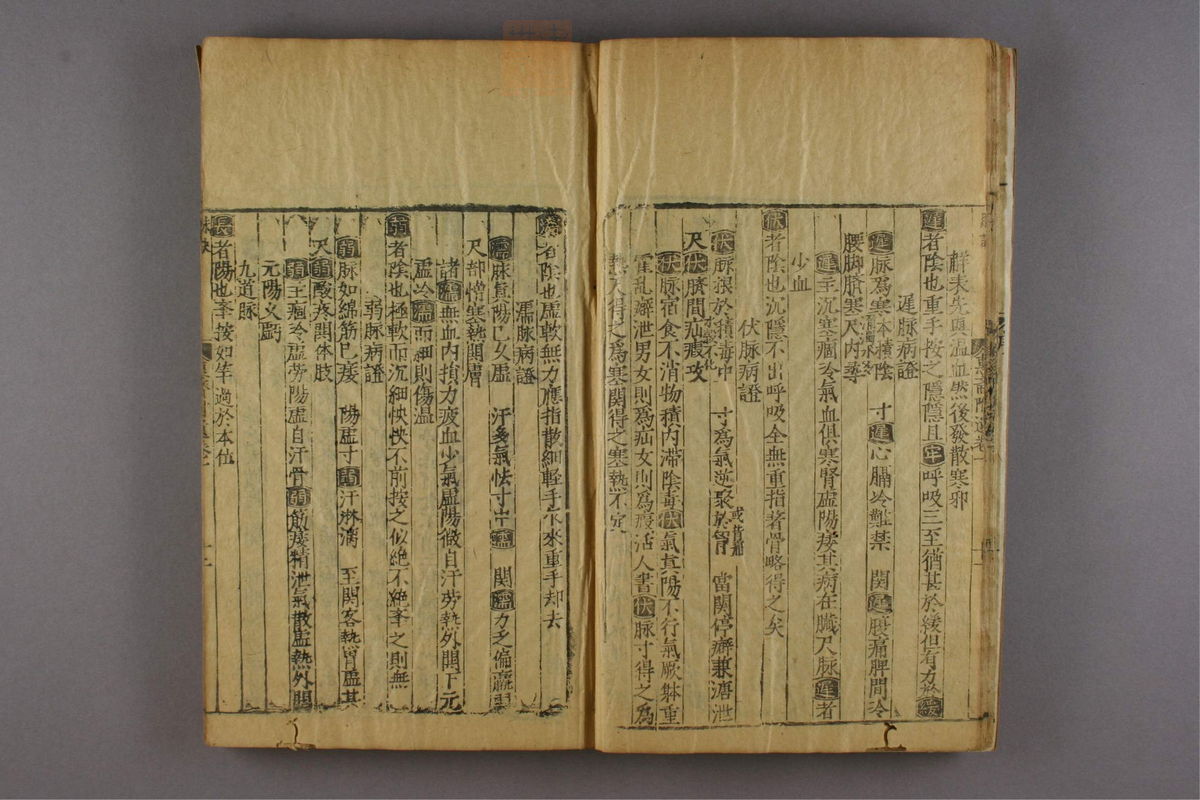 藓未先頭溫血然後發散寒邪
遲者陰也重手按之隱隱且牢呼吸三至猶甚於緩但有力於緩
遲脉病證
遲脉爲寒本積陰 寸遲心膈冷難禁 関遲腹痛脾間冷
腰脚臍寒尺內尋
遲主沉寒痼冷氣血俱寒腎虛陽痿其病在臟尺脉遲者
少血
伏者陰也沉隱不出呼吸全無重指著骨略得之矣
伏脉病證
伏脉根於積毒中 寸爲氣逆聚於胷 當関停癖兼溏泄
尺伏臍間疝瘕攻
伏脉宿食不消物積內滯陰毒伏氣真陽不行氣厥躰重
霍亂癖泄男女則爲疝女則爲瘕活人書伏脉寸得之爲
熱尺得之爲寒関得之寒熱不定
濡者陰也虛軟無力應指散細輕手乍來重手却去
濡脉病證
濡脉真陽已久虛 汗多氣怯寸中濡 関濡力乏偏羸弱
尺部憎寒熱関膚
諸濡無血內損力疲血少氣虛陽微自汗労熱外関下元
虛冷濡而細則傷温
弱者陰也極軟而沉細怏怏不前按之似絶不絶舉之則無
弱脉病證
弱脉如綿筋已痿 陽虛寸弱汗淋漓 至関客熱胃虛其
尺弱酸疼関体肢
弱主痼冷虛労陽虛自汗骨弱筋痿精泄氣散虛熱外関
元陽乂虧
九道脉
長者陽也李按如竿過於本位